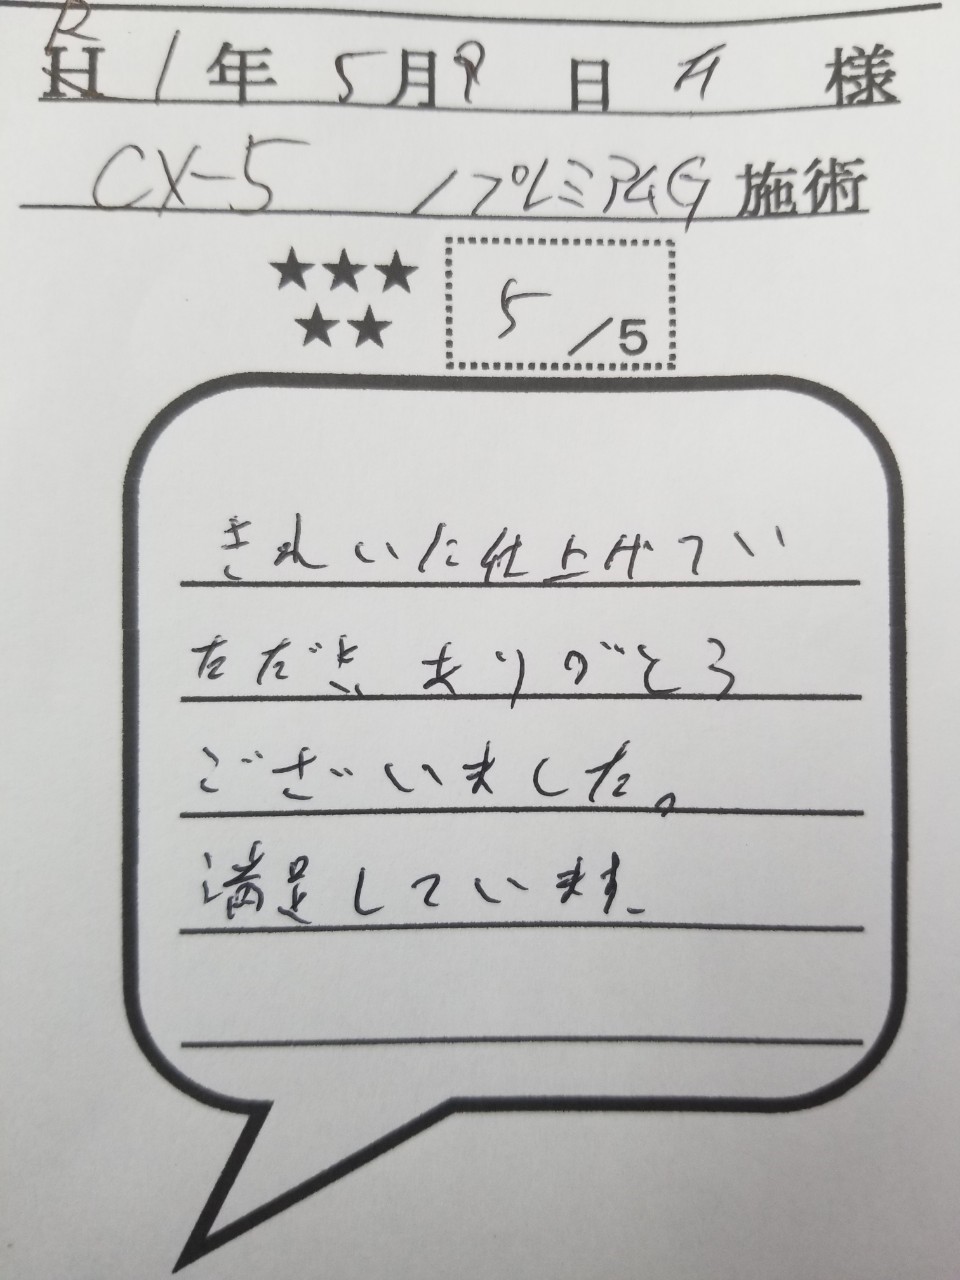 R
H 1年 5月 9日 A 様
CX-5 / プレミアムG 施術
★★★
★★
5/5
きれいに仕上げてい
ただき ありがとう
ございました。
満足しています。